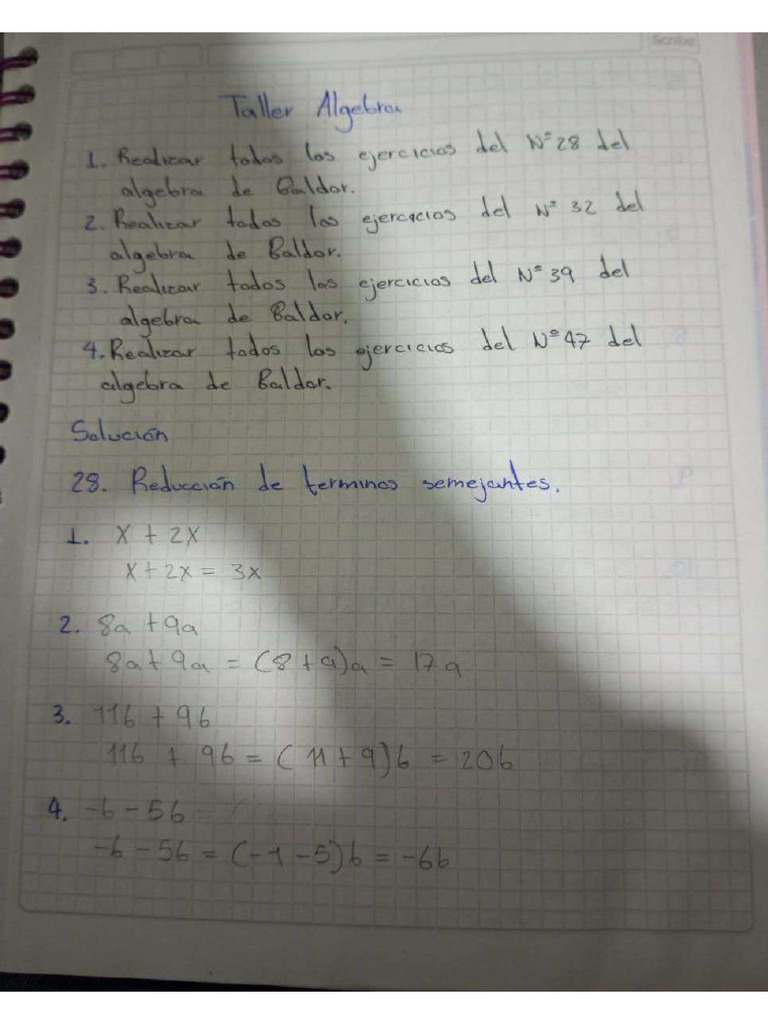 Scribe
Taller Algebra
1. Realizar todos los ejercicios del N°28 del
algebra de Baldor.
2. Realizar todos los ejercicios del N° 32 del
algebra de Baldor.
3. Realizar todos los ejercicios del N°39 del
algebra de Baldor.
4. Realizar todos los ejercicios del N°47 del
algebra de Baldor.
Solución
28. Reducción de terminos semejantes.
1. x + 2x
x + 2x = 3x
2. 8a + 9a
8a + 9a = (8 + 9)a = 17a
3. 11b + 9b
11b + 9b = (11 + 9)b = 20b
4. -b - 5b
-b - 5b = (-1 - 5)b = -6b